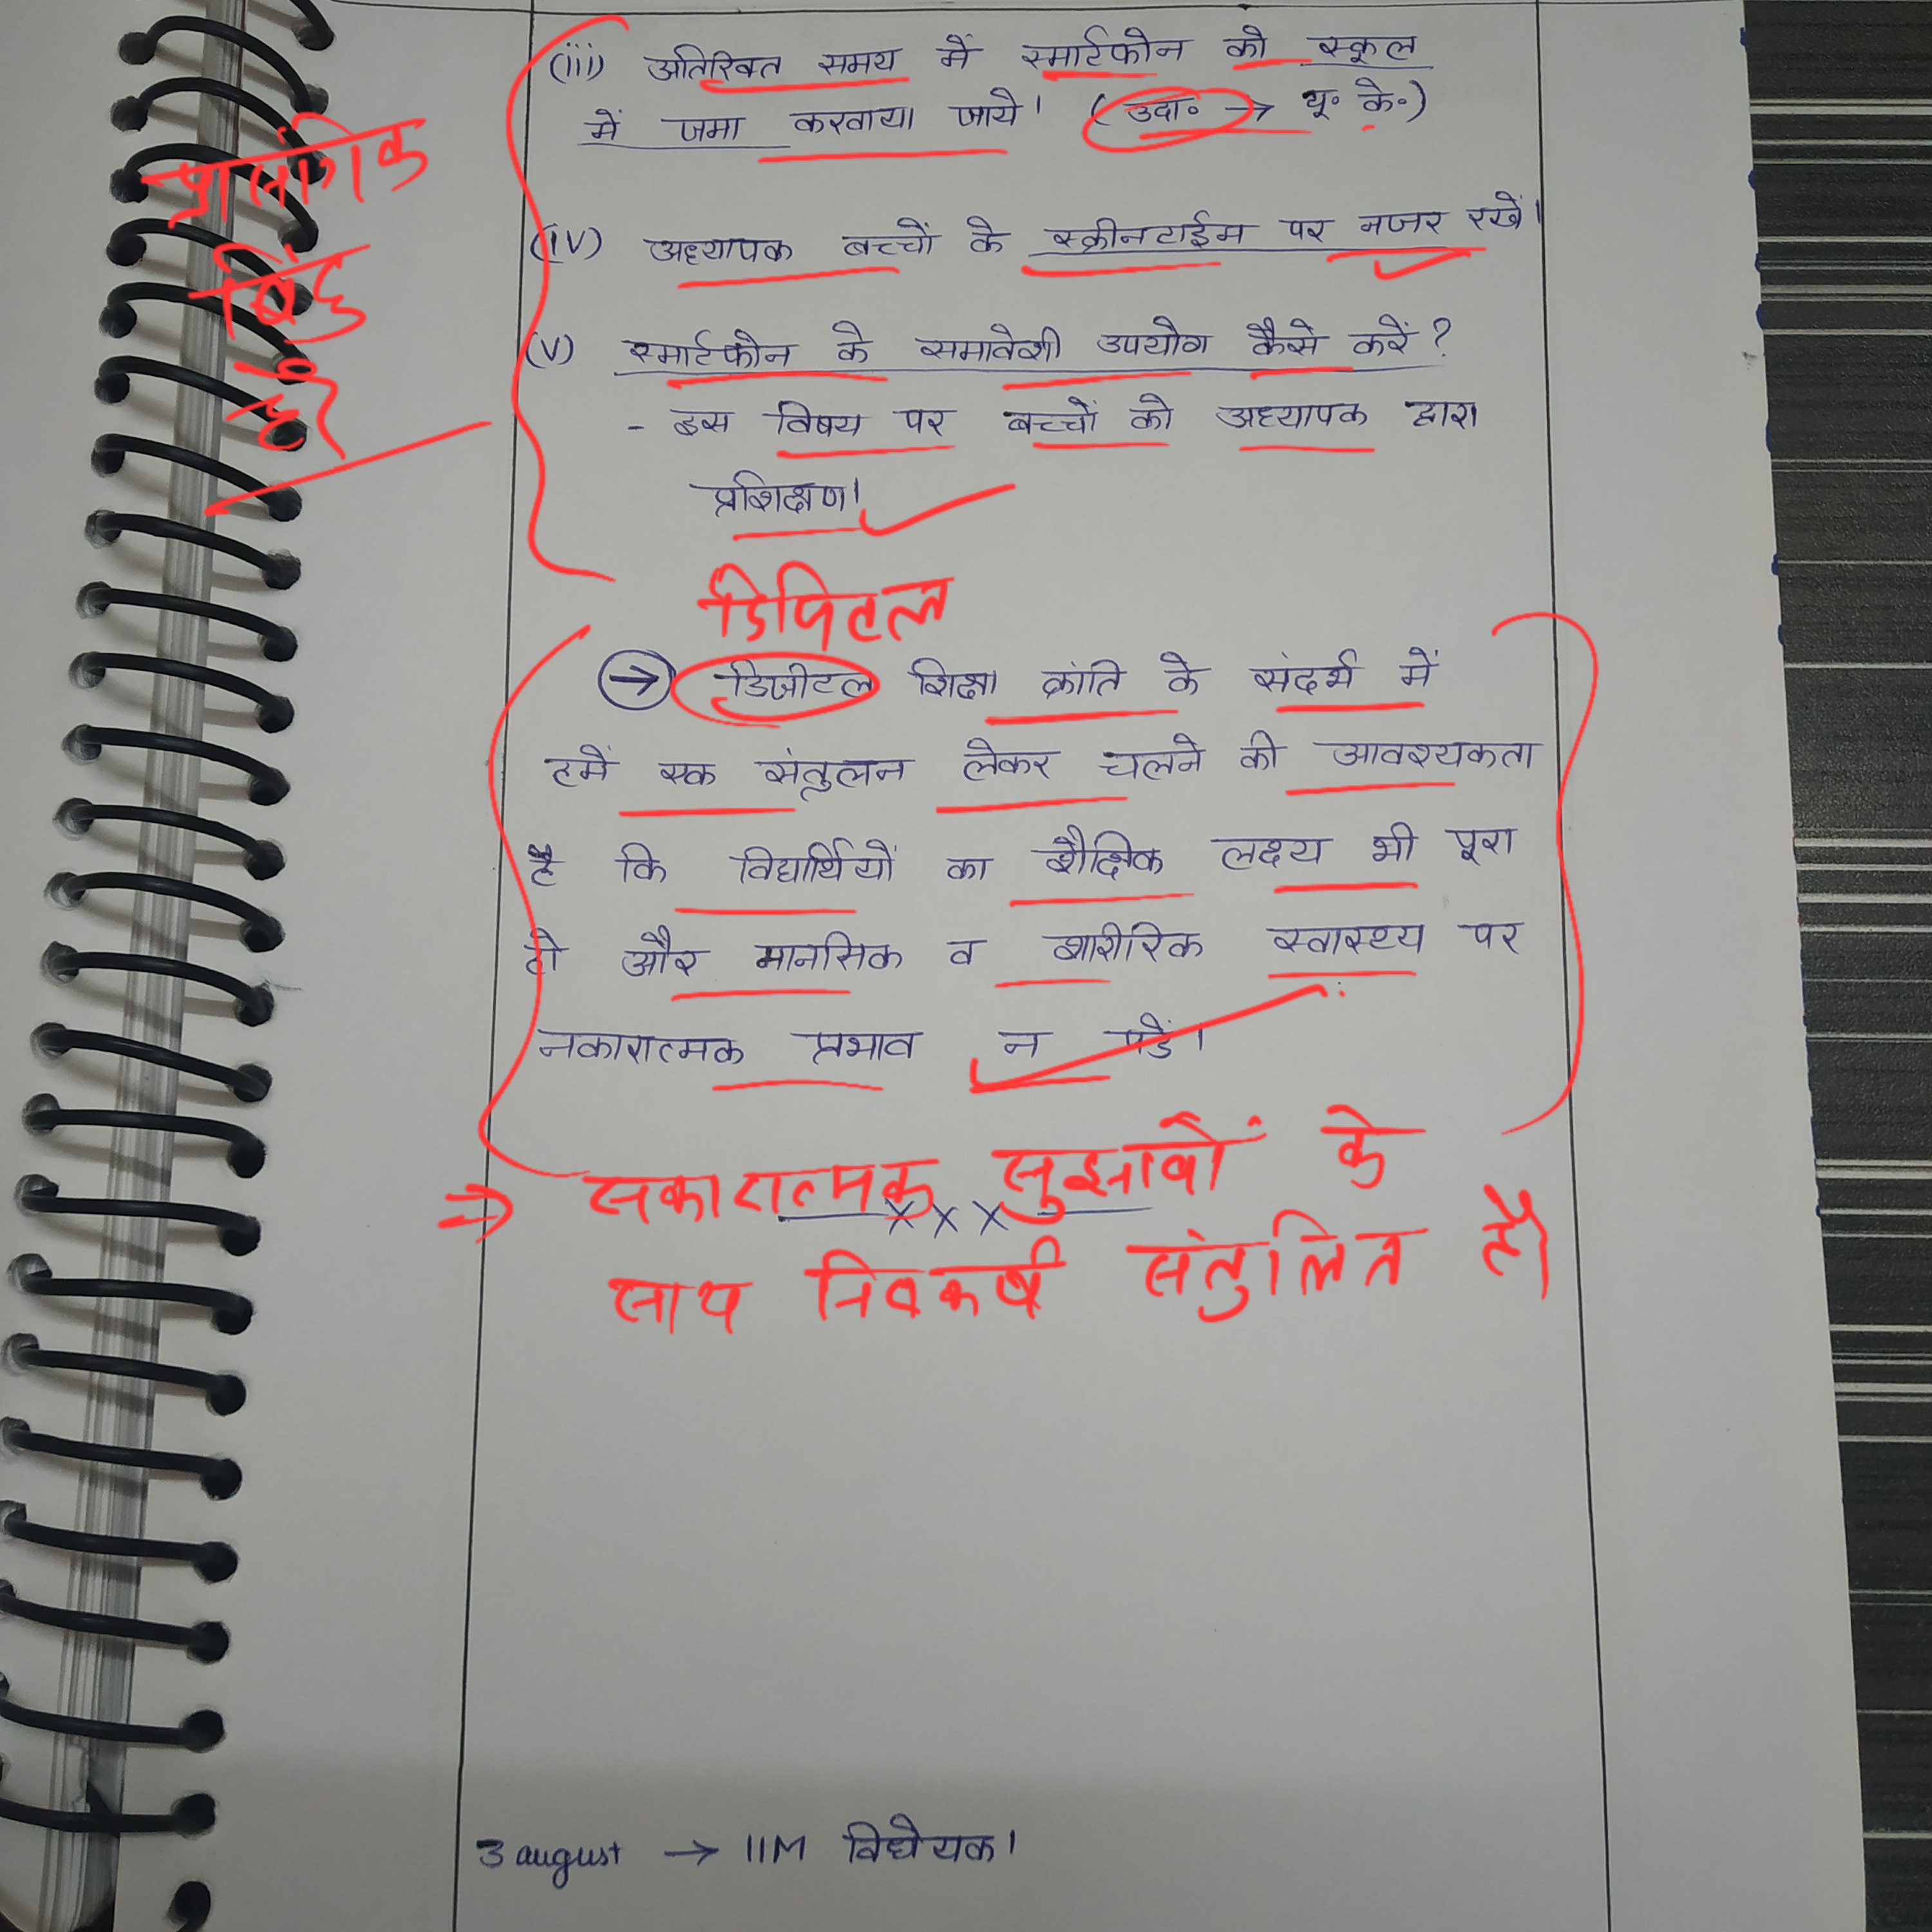 (iii) अतिरिक्त समय में स्मार्टफोन को स्कूल
में जमा करवाया जाये। (उदा॰ → यू॰ के॰)
प्रासंगिक
बिंदु
है।
(iv) अध्यापक बच्चों के स्क्रीनटाईम पर नजर रखें।
(v) स्मार्टफोन के समावेशी उपयोग कैसे करें?
- इस विषय पर बच्चों को अध्यापक द्वारा
प्रशिक्षण।
डिजिटल
→ डिजीटल शिक्षा क्रांति के संदर्भ में
हमें एक संतुलन लेकर चलने की आवश्यकता
है कि विद्यार्थियों का शैक्षिक लक्ष्य भी पूरा
हो और मानसिक व शारीरिक स्वास्थ्य पर
नकारात्मक प्रभाव न पडें।
⇒ सकारात्मक सुझावों के
x x x
साथ निष्कर्ष संतुलित है।
3 august → IIM विधेयक।